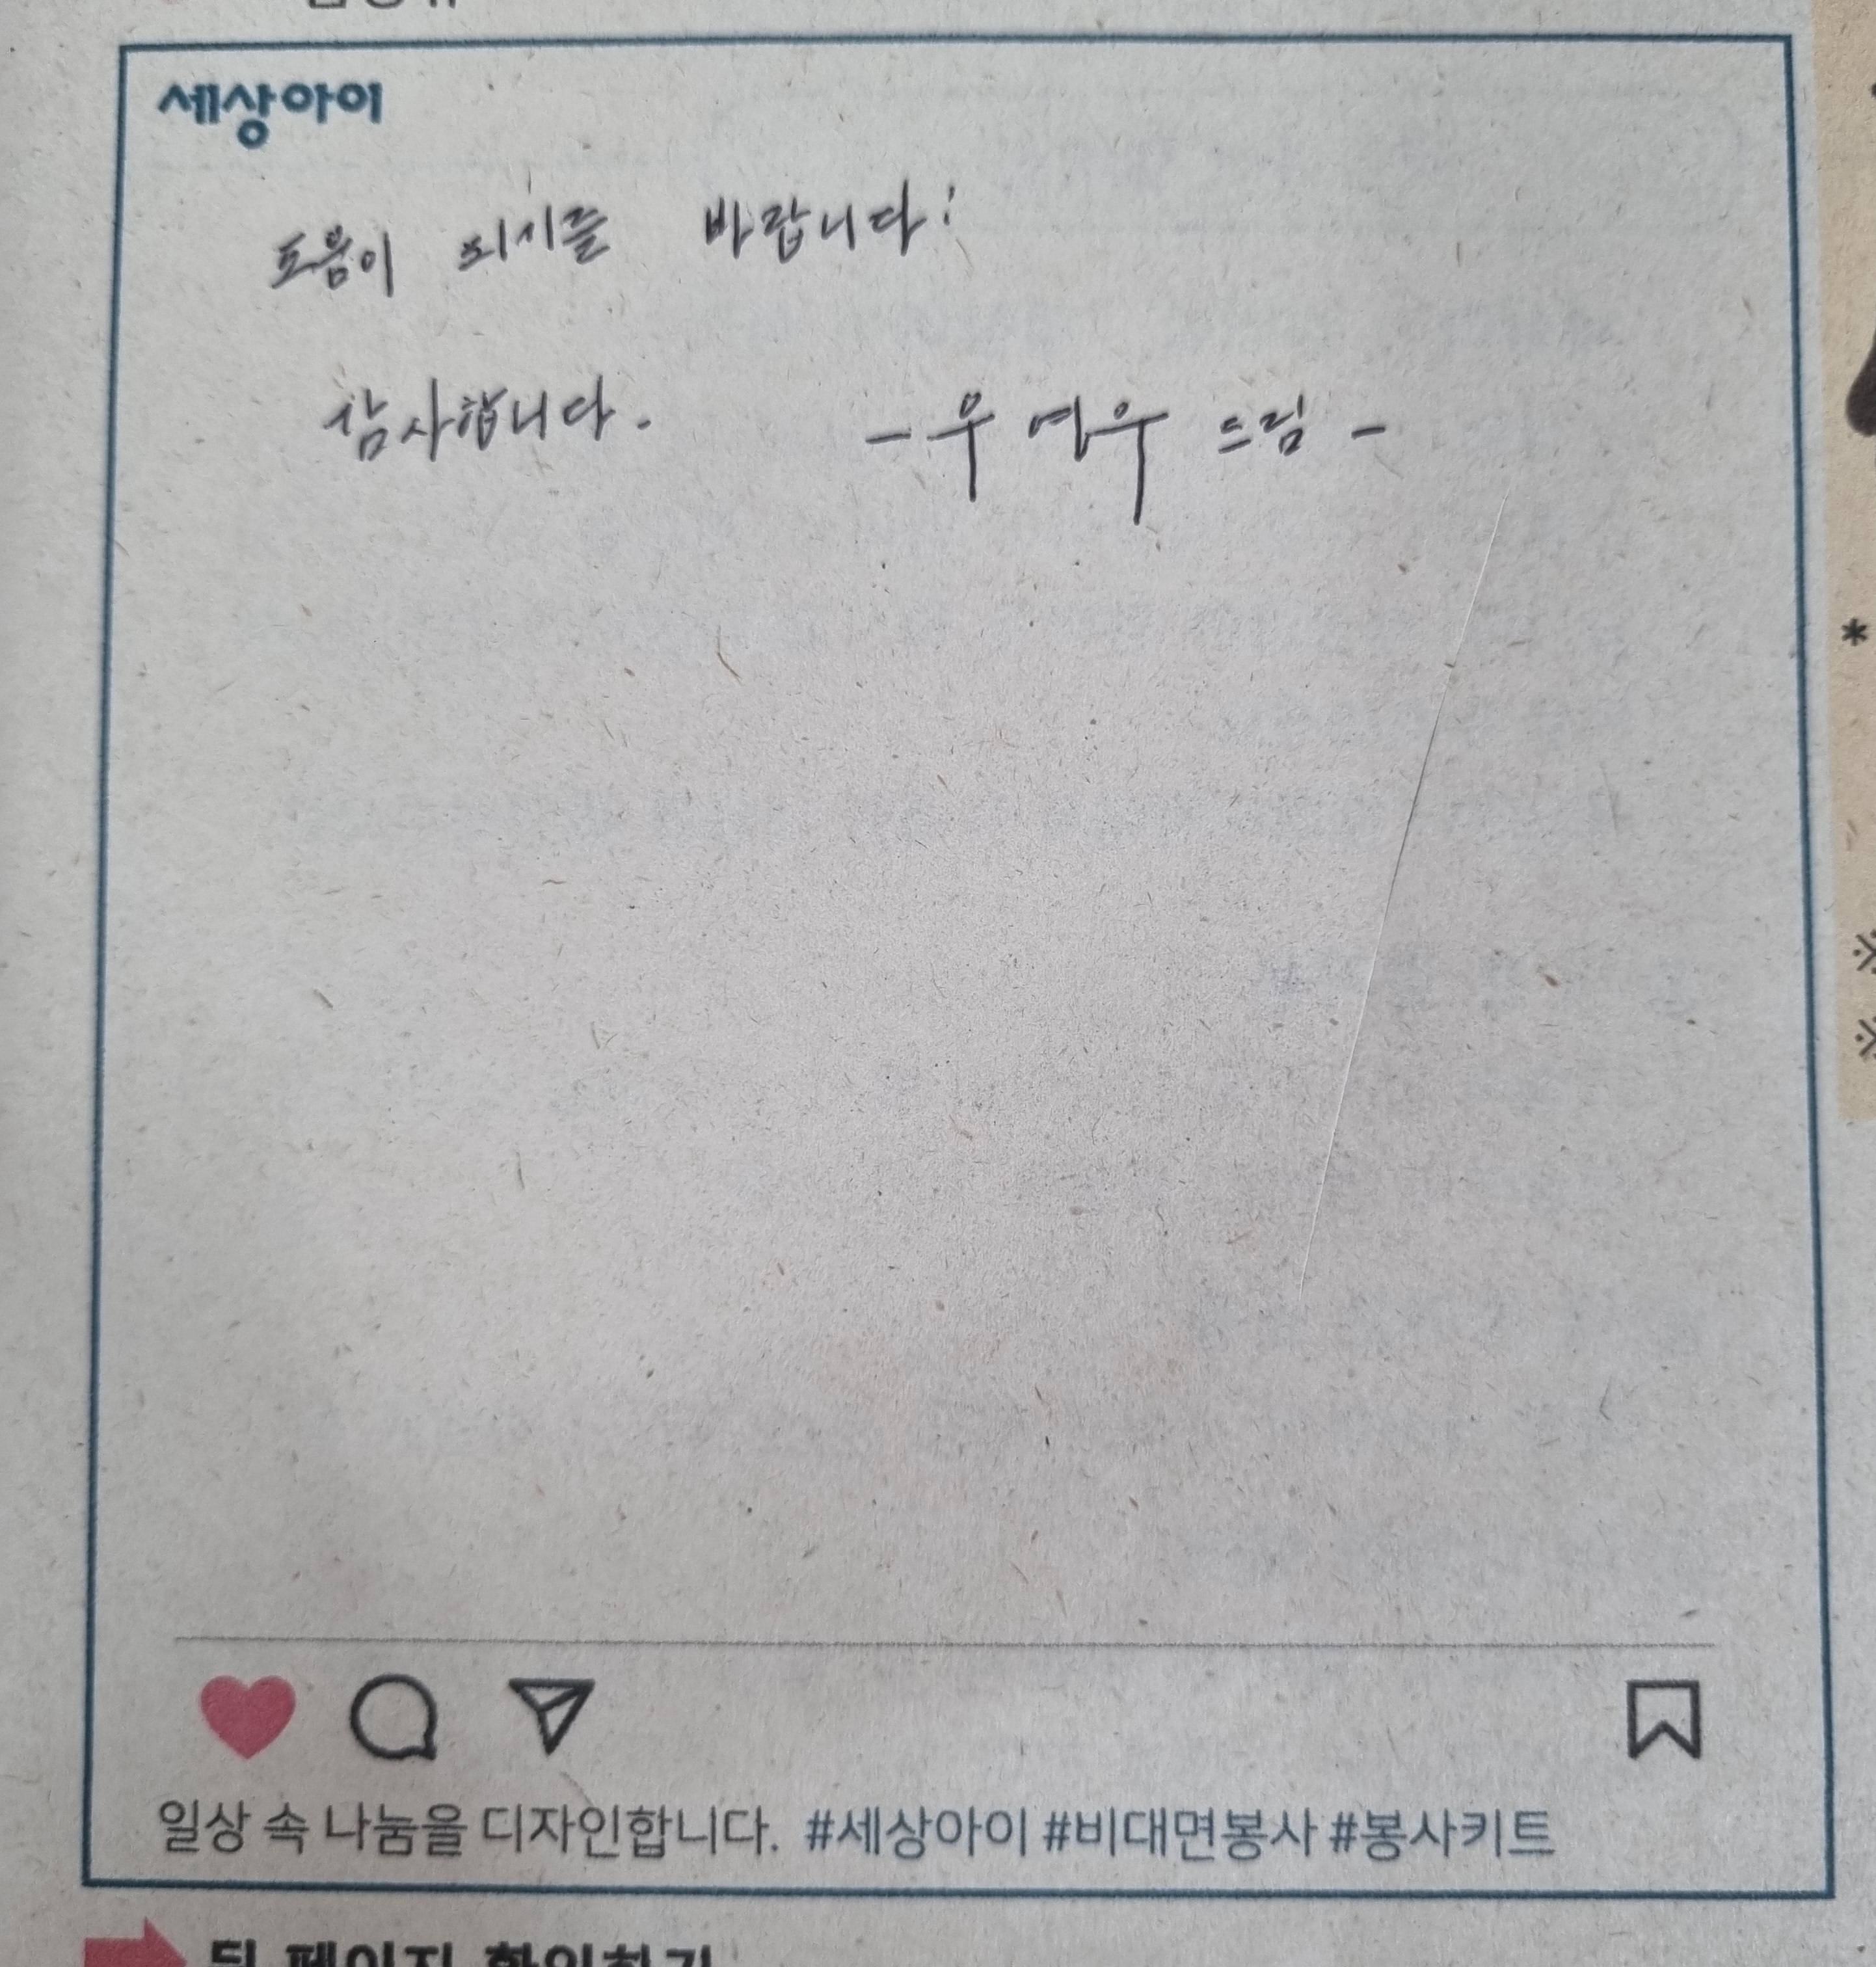 세상아이
도움이 되시를 바랍니다!
감사합니다. - 우연우 드림 -
일상 속 나눔을 디자인합니다. #세상아이 #비대면봉사 #봉사키트
뒷 페이지 확인하기